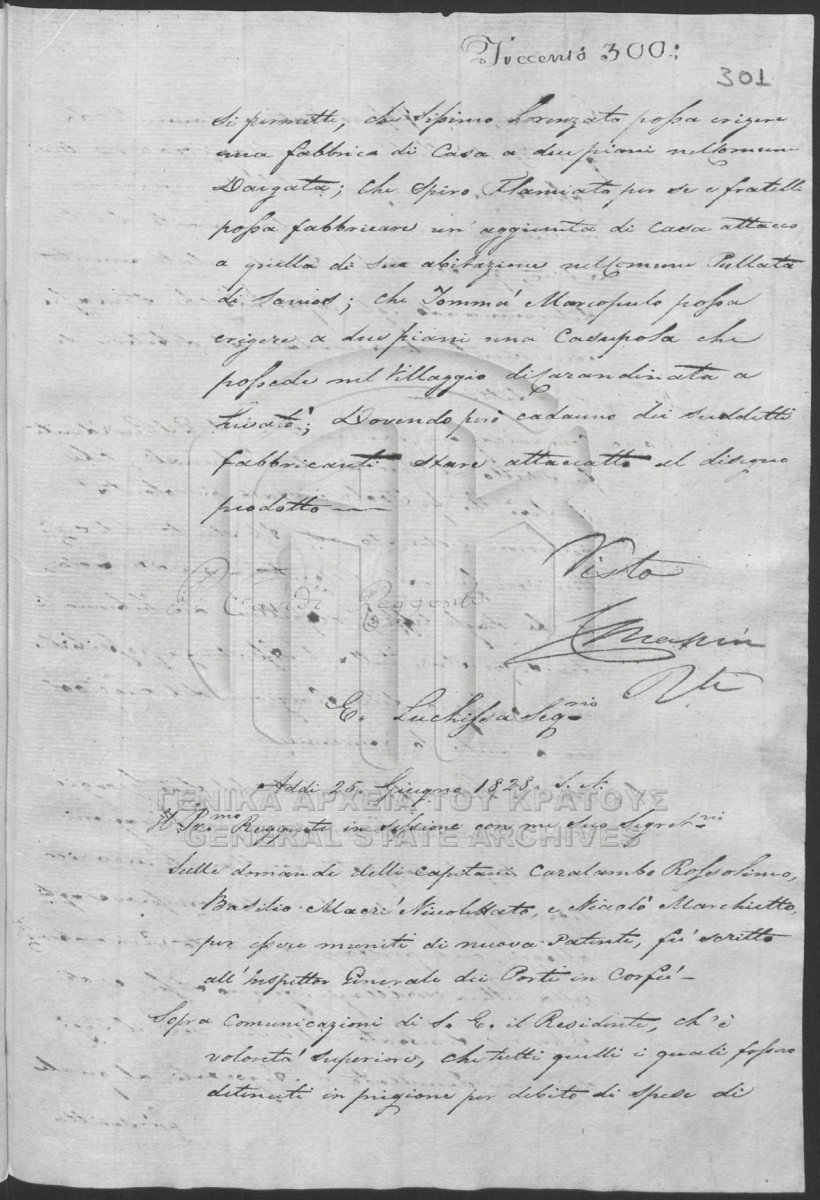 Treccento 300:
301
Si permette, che Sipimo Lorenzato possa erigere
una fabbrica di Casa a due piani nel Comune
Dargata; che Spiro Flamiato per se e fratelli
possa fabbricare un' aggiunta di Casa attacco
a quella di sua abitazione nel Comune Pullata
di Samos; che Tommà Marcopulo possa
erigere a due piani una Casupola che
possede nel Villaggio di Carandinata a
; Dovendo però cadauno dei suddetti
fabbricanti stare attaccatto al disegno
prodotto —
Visto
Reggente
E. Luchissa Seg.rio
Addì 25 Giugno 1828. S. N.
Il Pr.mo Reggente in sessione con me suo Segret.rio
Sulle domande delli Capitani Caralambo Rossolimo,
Basilio Macrì Nicolettato, e Nicolò Marchietto,
per essere muniti di nuova Patente, fù scritto
all' Inspettor Generale dei Porti in Corfù –
Sopra Comunicazioni di S. E. il Residente, ch' è
volontà superiore, che tutti quelli i quali fossero
detenuti in prigione per debito di spese di
ΓΕΝΙΚΑ ΑΡΧΕΙΑ ΤΟΥ ΚΡΑΤΟΥΣ
GENERAL STATE ARCHIVES